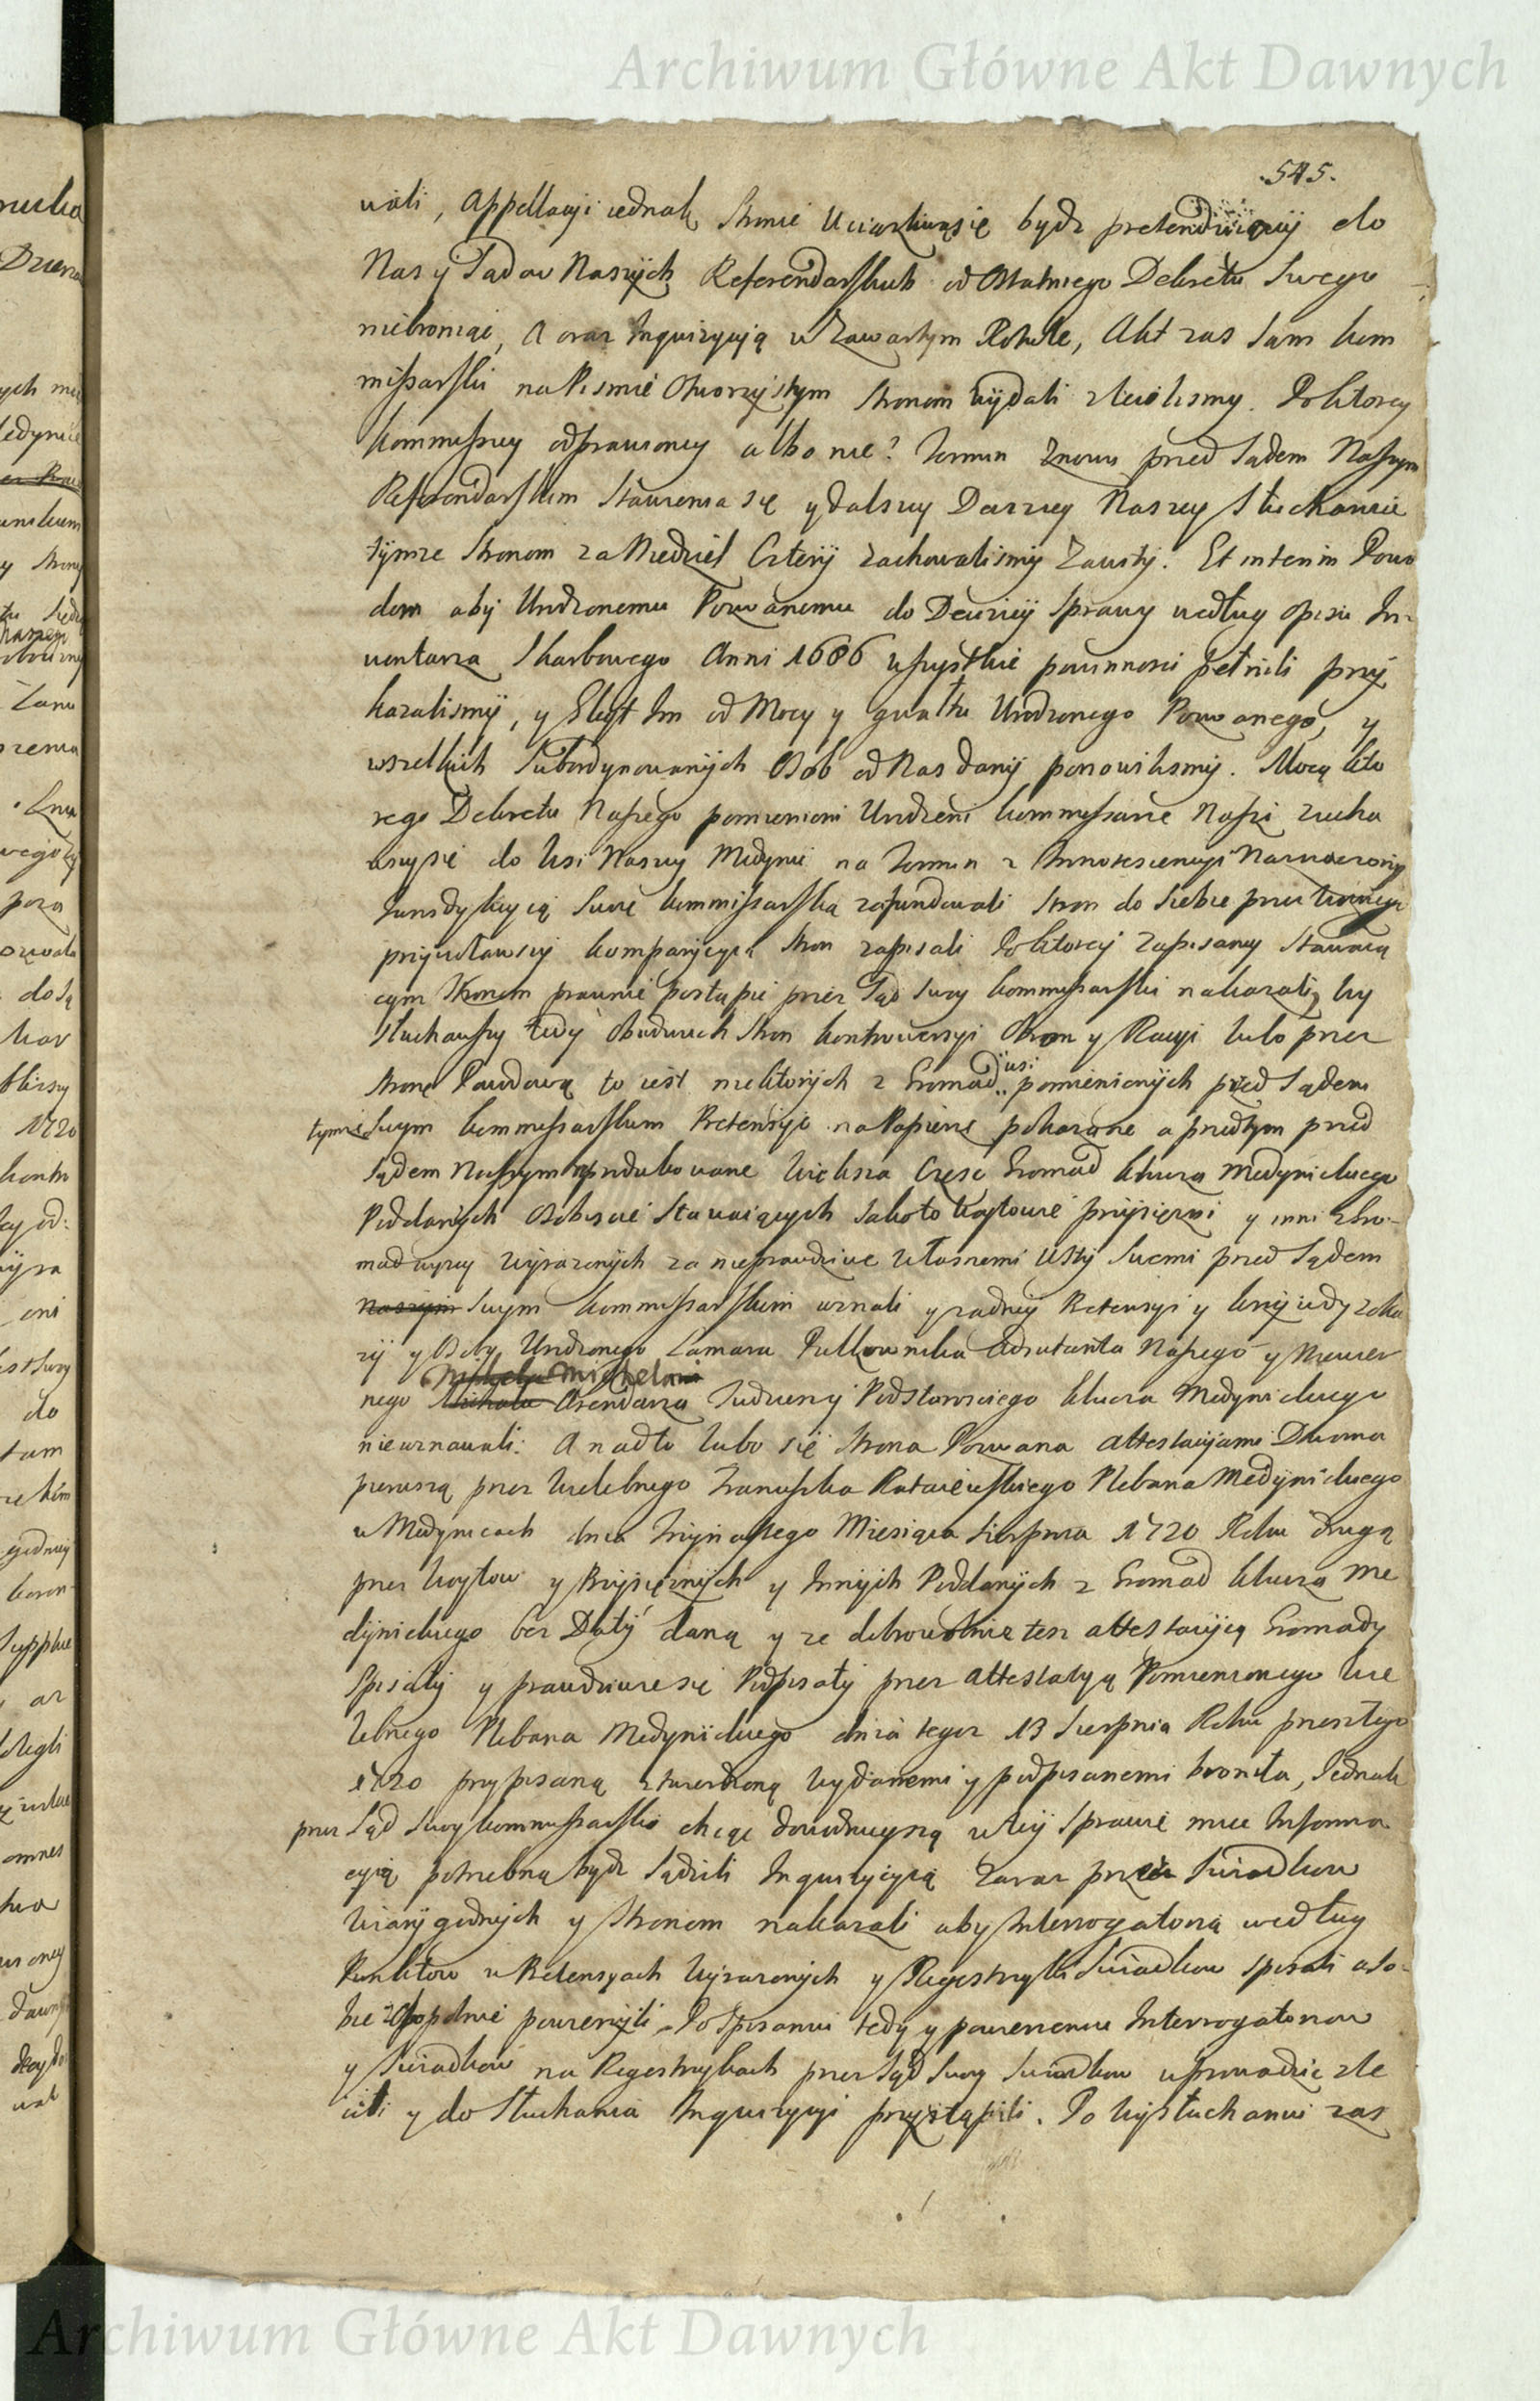 Archiwum Główne Akt Dawnych
.545.
wali, Appellacyi iednak Stronie Uciązliwąsię bydz pretenduiącey do
Nas y Sądow Naszych Referendarskich od Ostatniego Dekretu Swego
niebroniąc, A oraz Inquizycyią w Zawartym Rotule, Akt zas Sam kom
missarski na Pismie Otworzystym Stronom wydali zlecilismy. Po ktorey
kommissyey odprawioney albo nie? Termin Znowu przed Sądem Naszym
Referendarskim Stawienia się y dalszey Decyzyey Naszey Słuchanie
tymze Stronom za Niedziel Cztery zachowalismy Zawity. Et interim Powo
dom aby Urodzonemu Pozwanemu do Decyzyey Sprawy według opisu In-
wentarza Skarbowego Anni 1686 wszystkie powinnosci pełnili przy
kazalismy, y Gleyt Im od Mocy y gwałtu Urodzonego Pozwanego, y
wszelkich Subordynowanych Osob od Nas dany ponowilismy. Mocą kto
rego Dekretu Naszego pomienieni Urodzeni kommissarze Nasi ziecha
wszysie do Wsi Naszey Medynie na Termin z Innotescencyi Naznaczony
Jurysdykcyią Swoię kommissarską zafundowali Stron do Siebie przez Woznego
przywoławszy komparycyią Stron zapisali Po ktorey zapisaney Stawaią
cym Stronom prawnie postąpic przez Sąd Swoy kommissarski nakazali, kiy
Słuchawszy tedy Obudwuch Stron kontrowersyi Obron y Racyi lubo przez
usi
Stronę Powodową to iest niektorych z Gromad pomienionych przed Sądem
tymze Swym kommissarskim Pretensye na Papierze pokazane a przedtym przed
Sądem Naszym produkowane większa Częsc Gromad klucza Medynickiego
Poddanych Osobiscie Stawaiących iako to Woytowie przysięzni y inni z Gro-
mad wyzey wyrazonych za nieprawdziwe własnemi Usty Swemi przed Sądem
naszym Swym kommissarskim uznali y zadney Pretensyi y krzywdy z oka
zyi y Osoby Urodzonego Lamara Pułkownika Adiutanta Naszego y Niewier
Michela Michelowi
nego Michala Arendarza Tudziez y Podstarosciego klucza Medynickiego
nieuznawali: A nadto lubo się Strona Pozwana attestacyiami Dwoma
pierwszą przez Wielebnego Franciszka Rataiewskiego Plebana Medynickiego
w Medynicach dnia Trzynastego Miesiąca Sierpnia 1720 Roku drugą
przez Woytow y Przysięznych y Innych Poddanych z Gromad klucza Me
dynickiego bez Daty daną y ze dobrowolnie tez attestacyią Gromady
Spisały y prawdziwie się Podpisały przez attestacyą Pomienionego Wie
lebnego Plebana Medynickiego dnia tegoz 13 Sierpnia Roku przeszłego
1720 przypisaną stwierdzoną wydanemi y podpisanemi broniła, Jednak
przez Sąd Swoy kommissarski chcąc dowodnieyszą w tey Sprawie miec Informa
cyią potrzebną bydz Sądzili Inquizycyią Zaraz przez Swiadkow
Wiary godnych y Stronom nakazali aby Interrogatoria według
Punktow w Pretensyach wyrazonych y Regestrzyki Swiadkow spisali a so-
bie zobopolnie powierzyli. Po Spisaniu tedy y powierzeniu Interrogatoriow
y Swiadkow na Regestrzykach przez Sąd Swoy Swiadkow wprowadzic zle
cili y do Słuchania Inquizycyi przystąpili. Po wysłuchaniu zas
Archiwum Główne Akt Dawnych